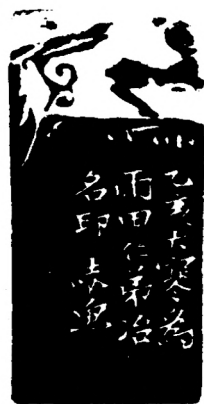 乙亥大寒為
雨田仁弟治
名印